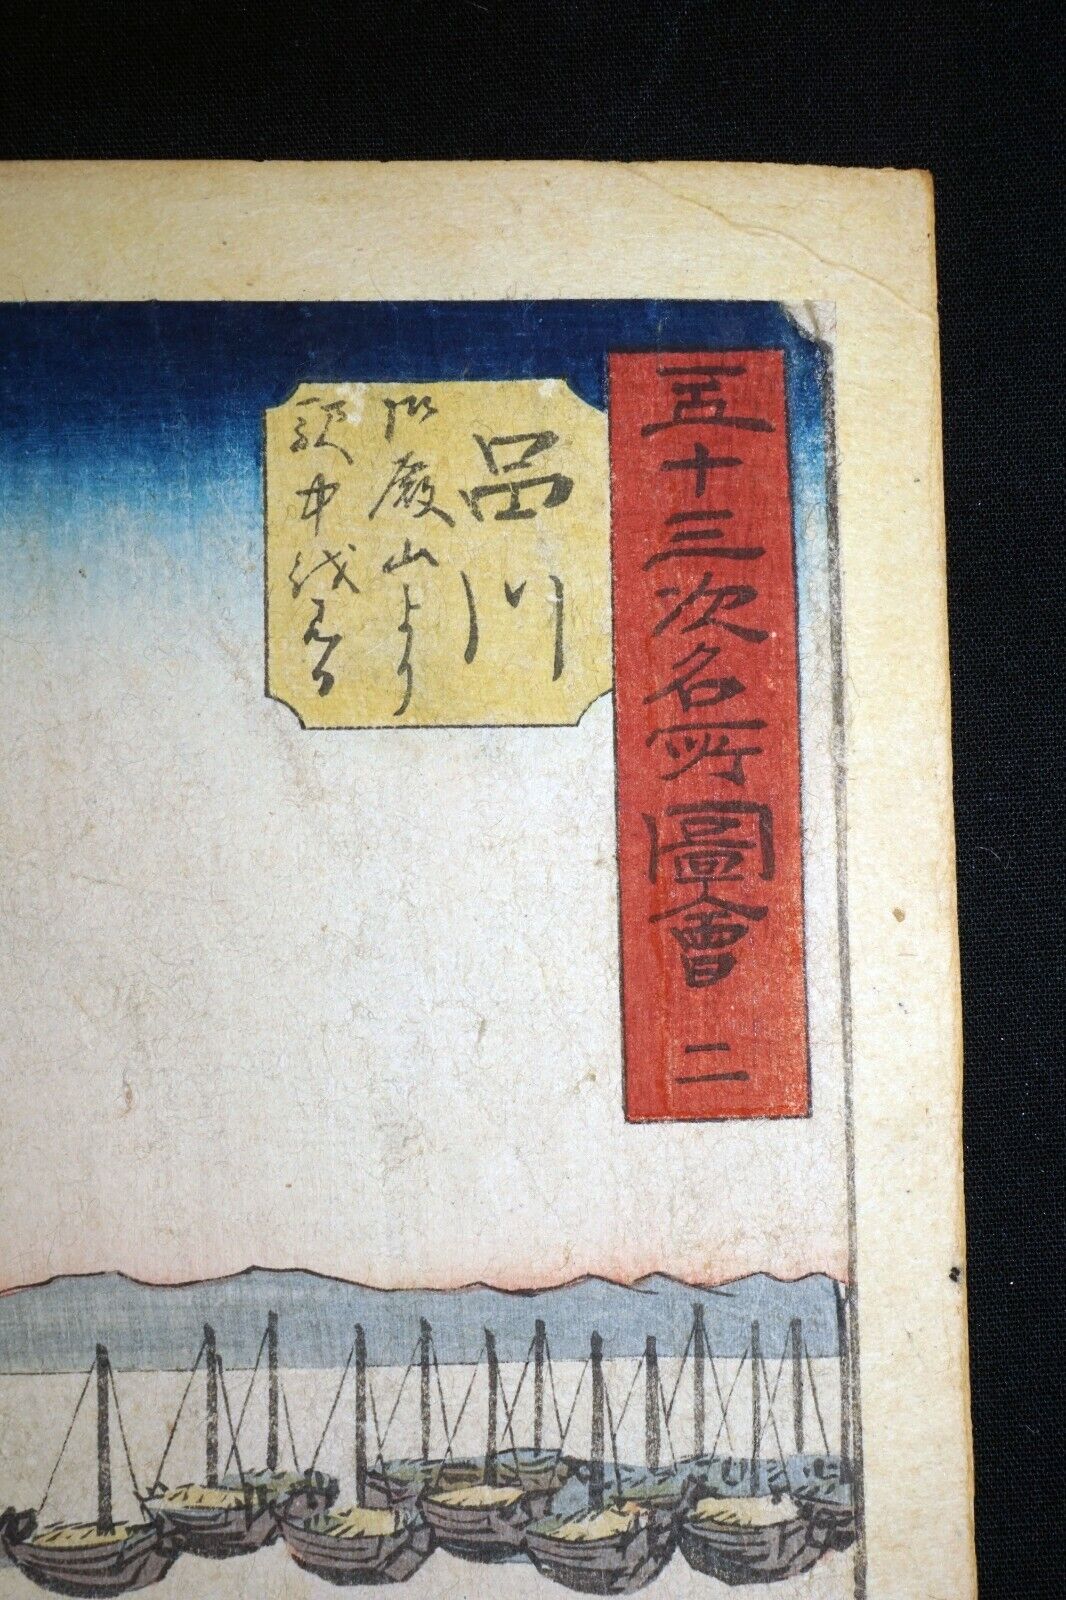 五十三次名所圖會 二
品川
御殿山より
駅中を見る